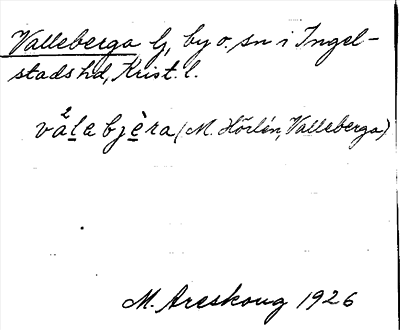 Valleberga lj, by o. sn i Ingel-
stads hd, Krist. l.
2
valebjèra (M. Hörlén, Valleberga)
M. Areskoug 1926